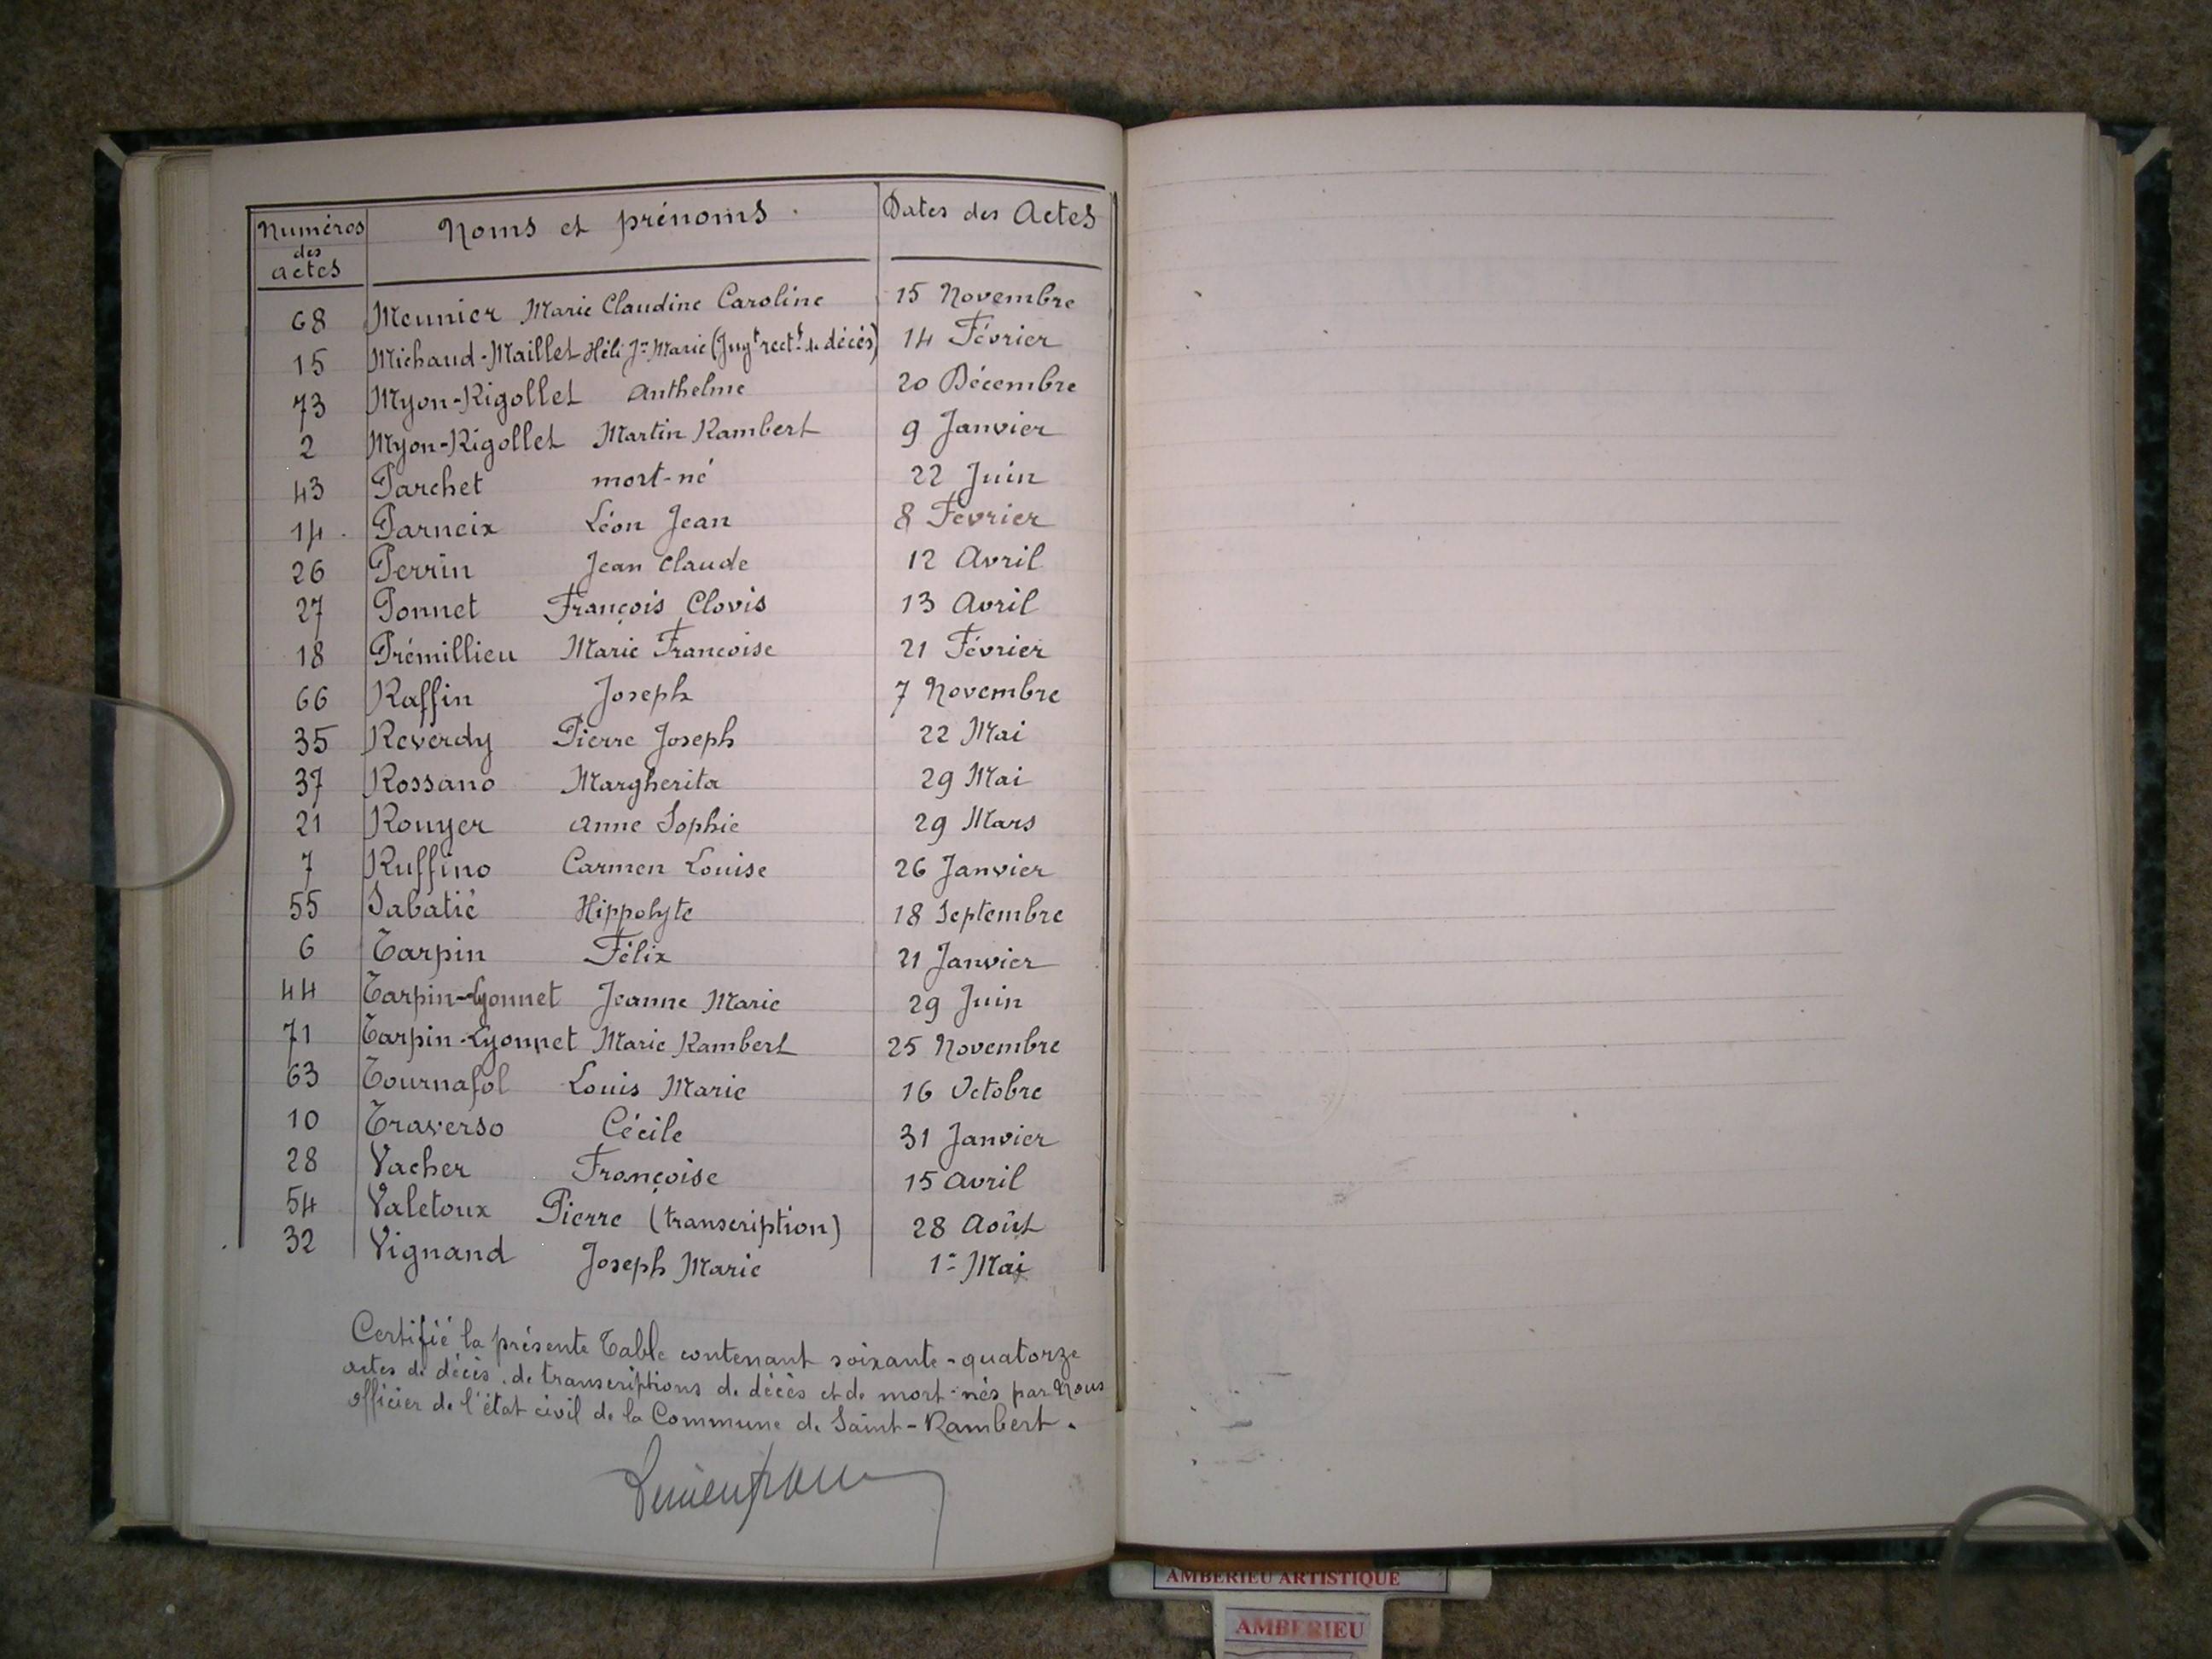 Numéros des actes Noms et prénoms. Dates des Actes
68 Meunier Marie Claudine Caroline 15 Novembre
15 Michaud-Maillet Héli Jn Marie (Jugt rectf de décès) 14 Février
73 Myon-Rigollet Anthelme 20 Décembre
2 Myon-Rigollet Martin Rambert 9 Janvier
43 Parchet mort-né 22 Juin
14 Parneix Léon Jean 8 Février
26 Perrin Jean Claude 12 Avril
27 Ponnet François Clovis 13 Avril
18 Prémillieu Marie Francoise 21 Février
66 Raffin Joseph 7 Novembre
35 Reverdy Pierre Joseph 22 Mai
37 Rossano Margherita 29 Mai
21 Rouyer Anne Sophie 29 Mars
7 Ruffino Carmen Louise 26 Janvier
55 Sabatié Hippolyte 18 Septembre
6 Tarpin Félix 21 Janvier
44 Tarpin-Lyonnet Jeanne Marie 29 Juin
71 Tarpin-Lyonnet Marie Rambert 25 Novembre
63 Tournafol Louis Marie 16 Octobre
10 Traverso Cécile 31 Janvier
28 Vacher Françoise 15 Avril
54 Valetoux Pierre (transcription) 28 Août
32 Vignand Joseph Marie 1er Mai
Certifié la présente Table contenant soixante-quatorze
actes de décès, de transcriptions de décès et de mort-nés par Nous
officier de l'état civil de la Commune de Saint-Rambert.
AMBERIEU ARTISTIQUE
AMBERIEU